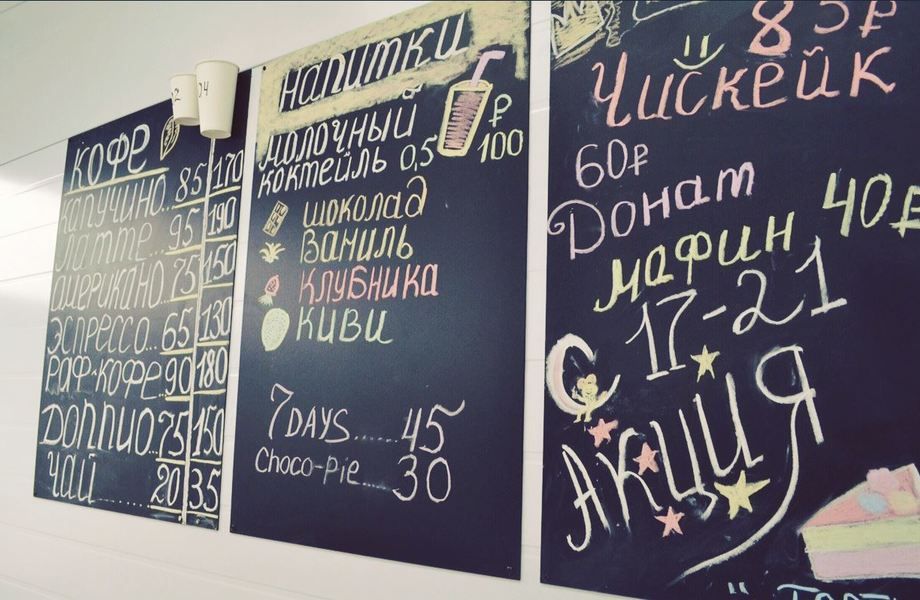 КОФЕ
КАПУЧИНО.. 85 170
ЛАТТЕ... 95 190
АМЕРИКАНО. 75 150
ЭСПРЕССО.. 65 130
РАФ-КОФЕ 90 180
ДОППИО.. 75 150
ЧАЙ..... 20 35
НАПИТКИ
МОЛОЧНЫЙ
КОКТЕЙЛЬ 0,5 100 ₽
ШОКОЛАД
ВАНИЛЬ
КЛУБНИКА
КИВИ
7DAYS......45
Choco-Pie....30
85₽
Чискейк
60₽
Донат
мафин 40₽
С 17-21
АКЦИЯ